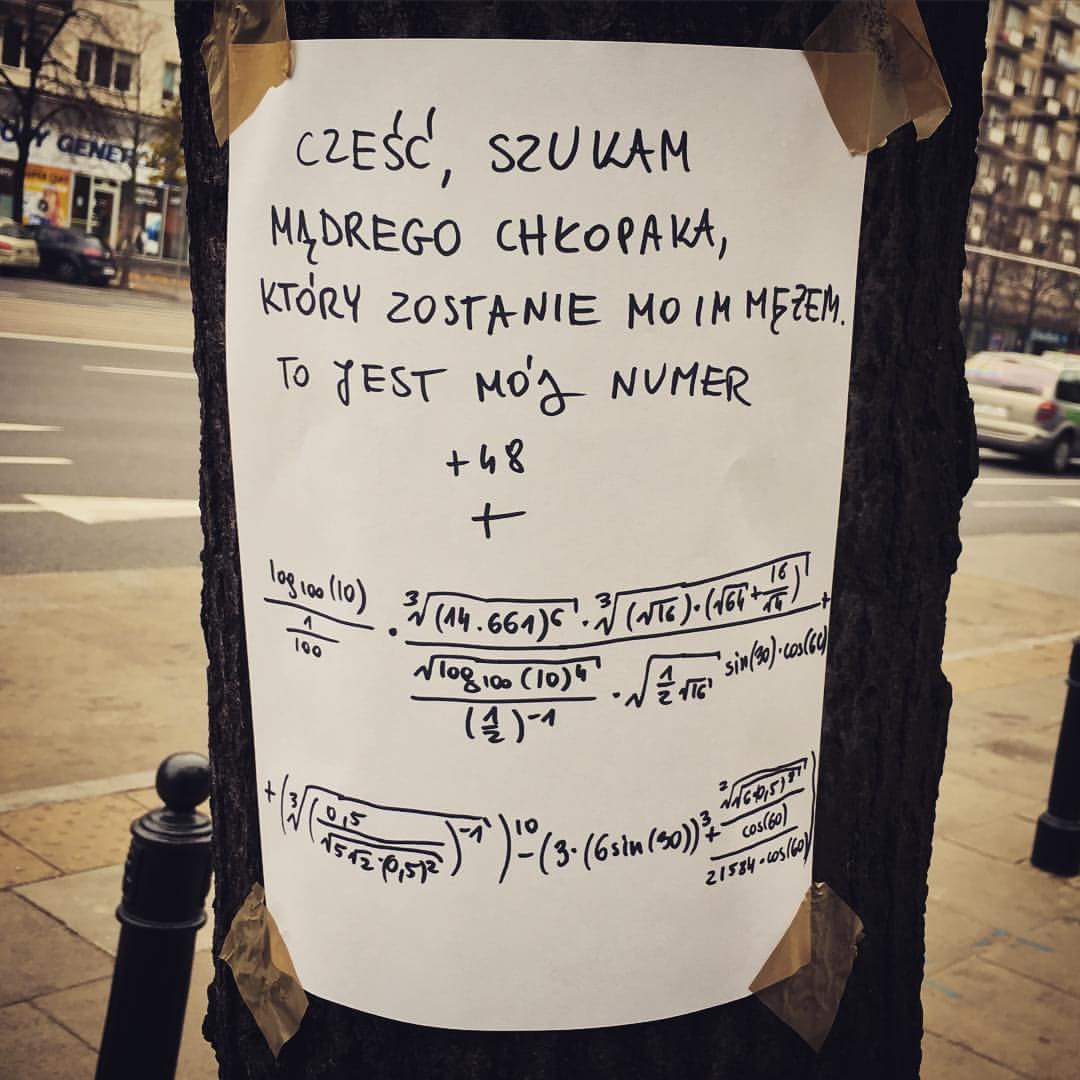 OWY GENER
CZEŚĆ, SZUKAM
MĄDREGO CHŁOPAKA,
KTÓRY ZOSTANIE MOIM MĘŻEM.
TO JEST MÓJ NUMER
+48
+
log₁₀₀(10) / (1/100) · (∛(14.661)⁶ · ∛((√16)·(√64+16/√4))) / (√log₁₀₀(10)⁴ / (1/2)⁻¹ · √(1/2 √16) sin(30)·cos(60)) +
+(∛(0,5 / √512·(0,5)²)⁻¹)¹⁰ - (3·(6sin(30))³ +
cos(60)
21584·cos(60)